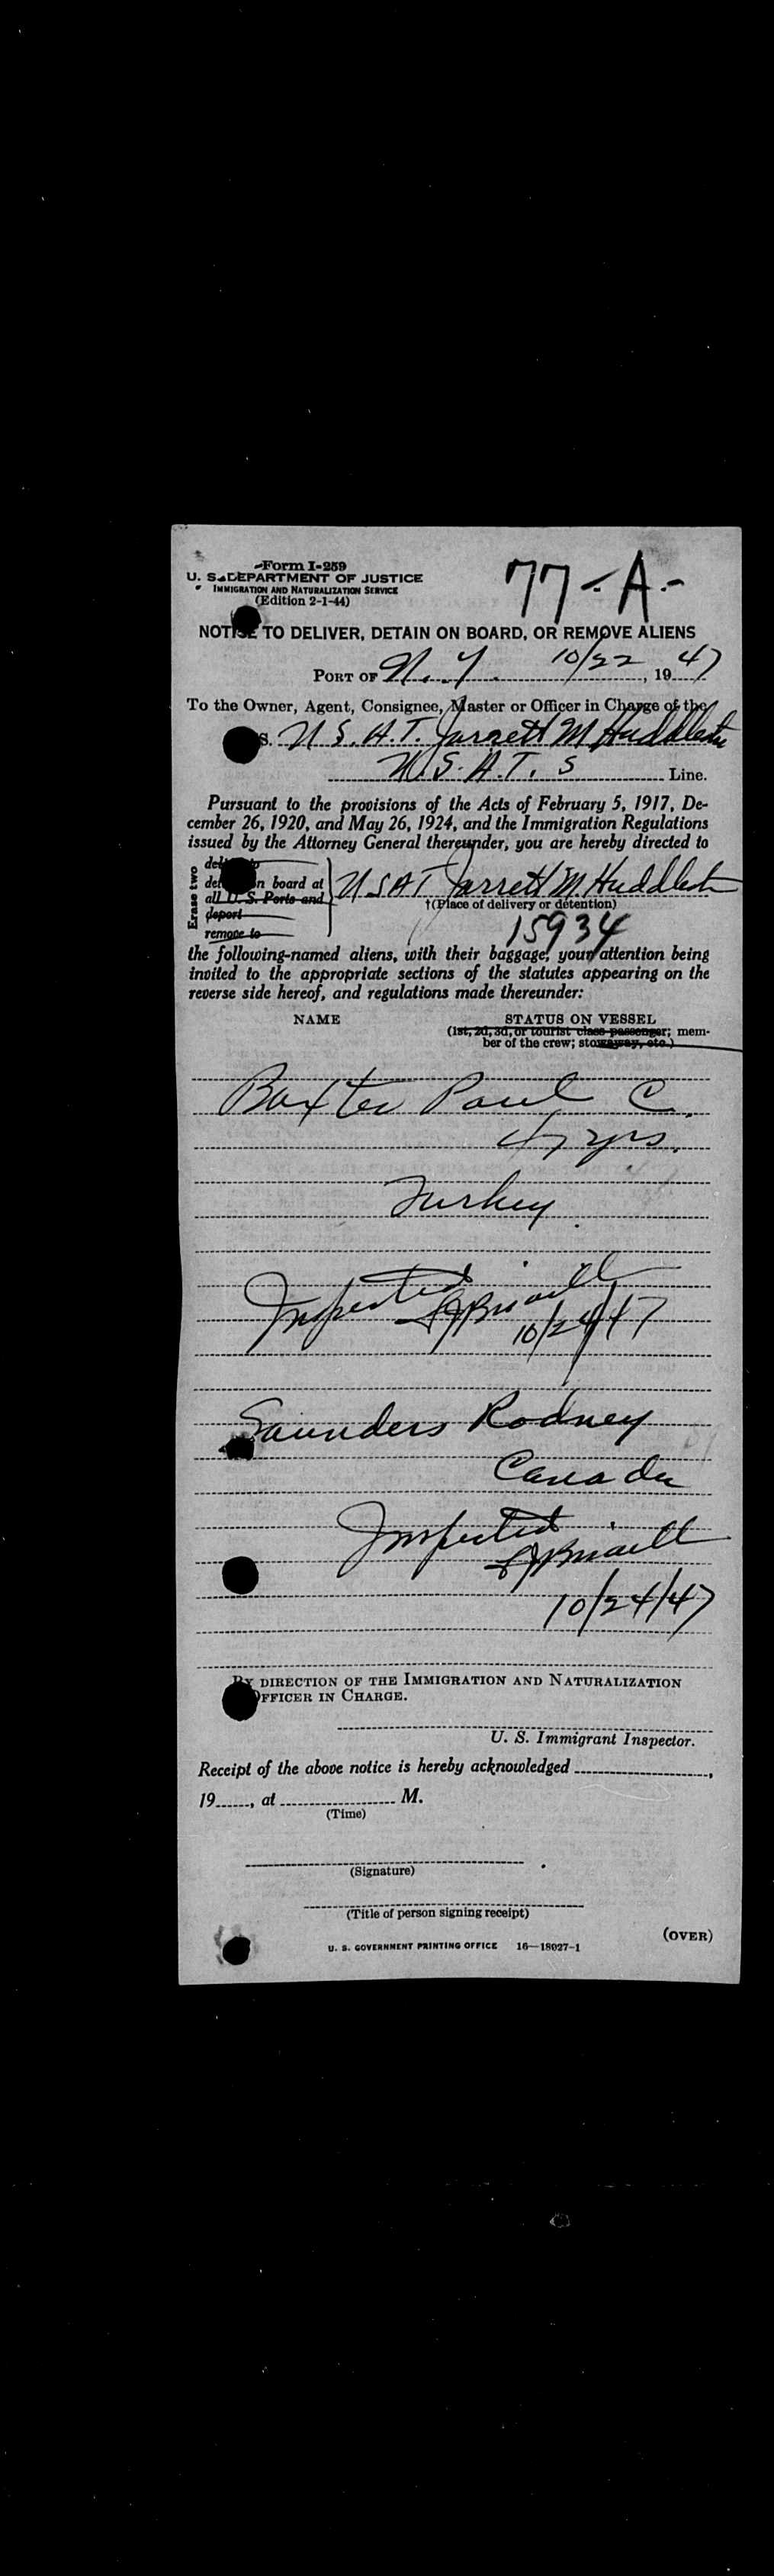 Form I-259
U. S. DEPARTMENT OF JUSTICE
IMMIGRATION AND NATURALIZATION SERVICE
(Edition 2-1-44)
77-A-
NOTICE TO DELIVER, DETAIN ON BOARD, OR REMOVE ALIENS
PORT OF N.Y. 10/22, 1947
To the Owner, Agent, Consignee, Master or Officer in Charge of the
S. U S. A. T. Jarrett M Huddleston
U.S.A.T. S Line.
Pursuant to the provisions of the Acts of February 5, 1917, De-
cember 26, 1920, and May 26, 1924, and the Immigration Regulations
issued by the Attorney General thereunder, you are hereby directed to
Erase two
deliver to
detain on board at
all U. S. Ports and
deport
remove to
U S A T Jarrett M. Huddleston
†(Place of delivery or detention)
15934
the following-named aliens, with their baggage, your attention being
invited to the appropriate sections of the statutes appearing on the
reverse side hereof, and regulations made thereunder:
NAME STATUS ON VESSEL
(1st, 2d, 3d, or tourist class passenger; mem-
ber of the crew; stowaway, etc.)
Baxter Paul C.
47 yrs.
Turkey
Inspected
10/24/47
Saunders Rodney
Canada
Inspected
10/24/47
BY DIRECTION OF THE IMMIGRATION AND NATURALIZATION
OFFICER IN CHARGE.
U. S. Immigrant Inspector.
Receipt of the above notice is hereby acknowledged ,
19 , at M.
(Time)
(Signature)
(Title of person signing receipt)
(OVER)
U. S. GOVERNMENT PRINTING OFFICE 16—18027-1